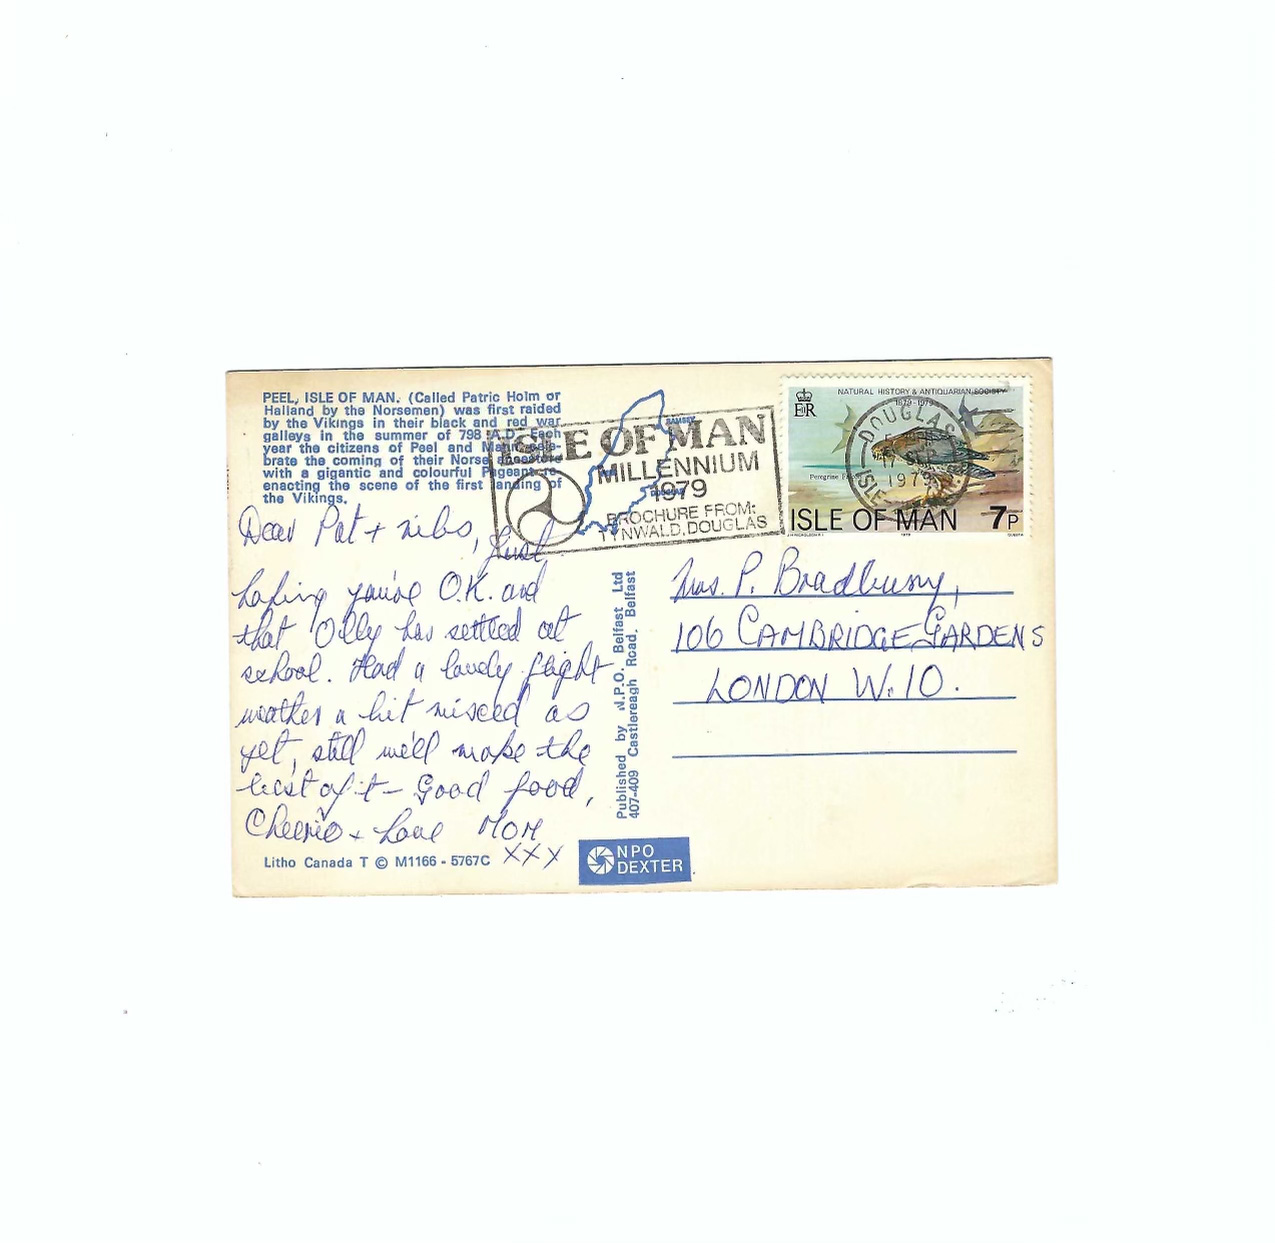 PEEL, ISLE OF MAN. (Called Patric Holm or
Halland by the Norsemen) was first raided
by the Vikings in their black and red war
galleys in the summer of 798 A.D. Each
year the citizens of Peel and Mann cele-
brate the coming of their Norse ancestors
with a gigantic and colourful Pageant re-
enacting the scene of the first landing of
the Vikings.
RAMSEY
DOUGLAS
ISLE OF MAN
MILLENNIUM
1979
BROCHURE FROM:
TYNWALD, DOUGLAS
NATURAL HISTORY & ANTIQUARIAN SOCIETY
1879-1979
EIIR
DOUGLAS
17 SEP
1979
ISLE OF MAN
Peregrine
ISLE OF MAN 7P
1979
Dear Pat + nibs, Just
hoping you're O.K. and
that Olly has settled at
school. Had a lovely flight
weather a bit mixed as
yet, still we'll make the
best of it - Good food,
Cheerio + Love Mom
XXX
Litho Canada T © M1166 - 5767C
Published by N.P.O. Belfast Ltd
407-409 Castlereagh Road, Belfast
NPO
DEXTER
Mrs. P. Bradbury,
106 CAMBRIDGE GARDENS
LONDON W.10.